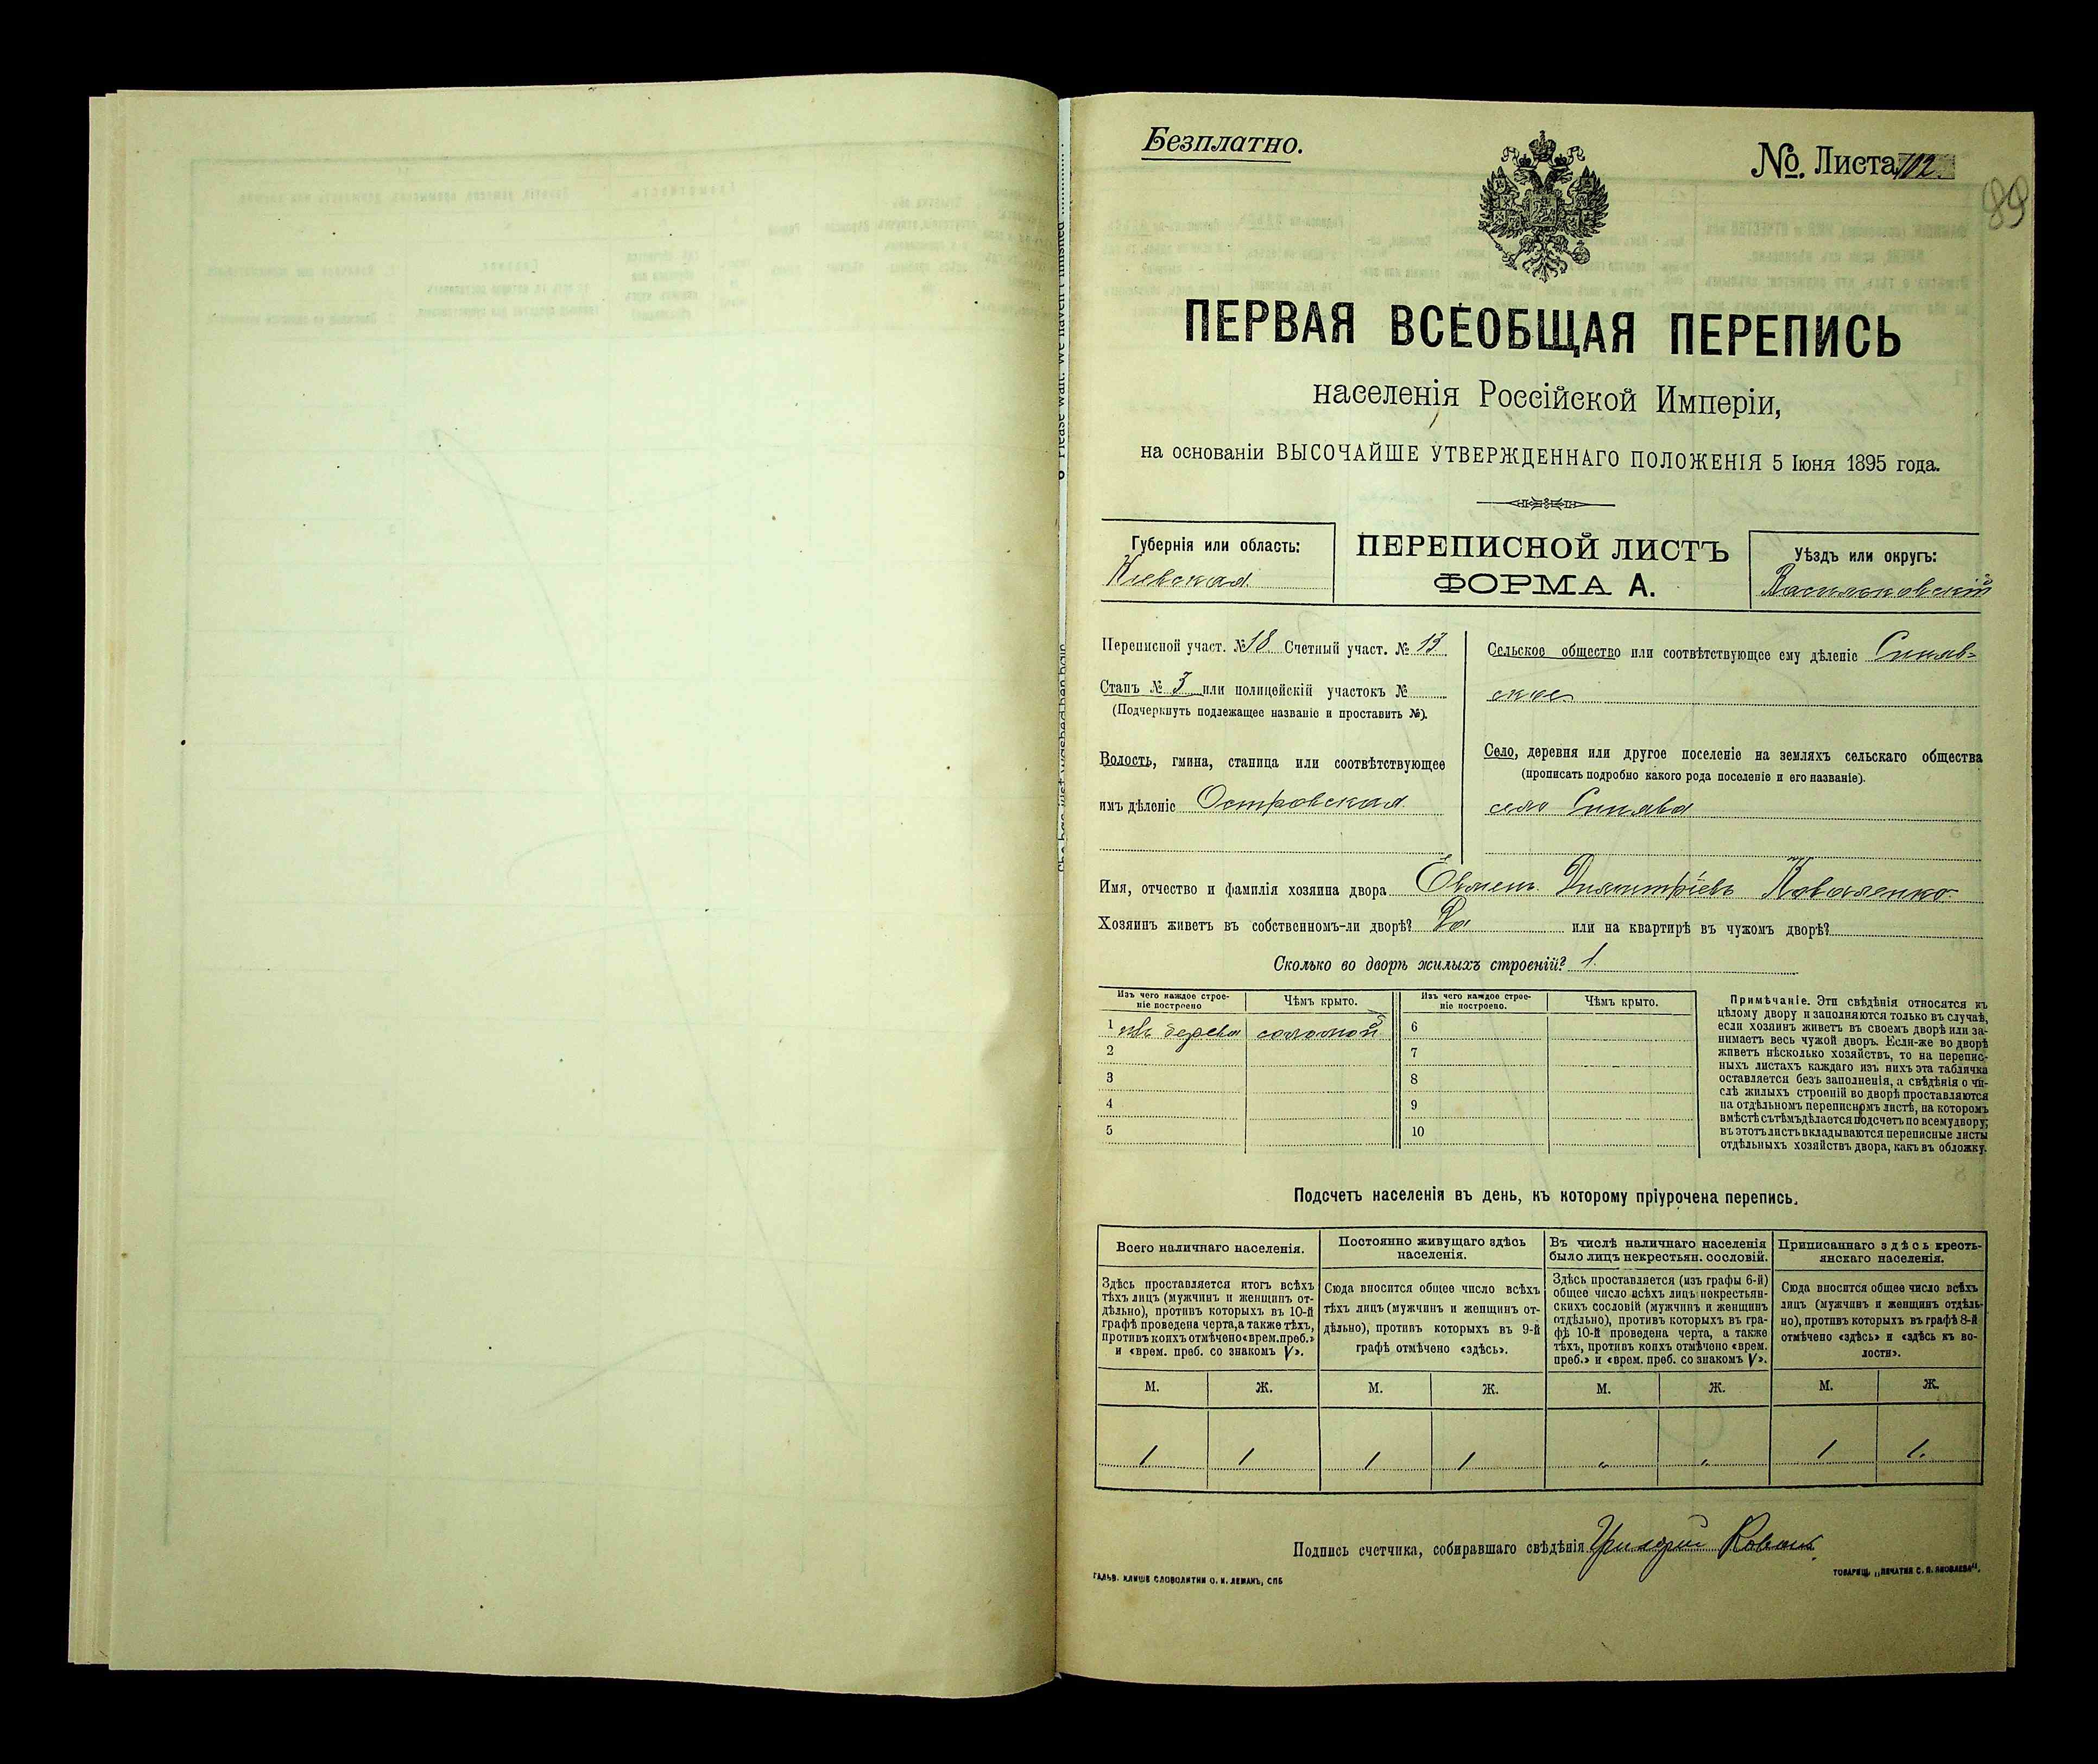 Безплатно.
№. Листа 102
89
ПЕРВАЯ ВСЕОБЩАЯ ПЕРЕПИСЬ
населенія Россійской Имперіи,
на основаніи ВЫСОЧАЙШЕ УТВЕРЖДЕННАГО ПОЛОЖЕНІЯ 5 Іюня 1895 года.
Губернія или область:
Кіевская
ПЕРЕПИСНОЙ ЛИСТЪ
ФОРМА А.
Уѣздъ или округъ:
Васильковскій
Переписной участ. № 18 Счетный участ. № 13
Станъ № 3 или полицейскій участокъ №
(Подчеркнуть подлежащее названіе и проставить №).
Волость, гмина, станица или соотвѣтствующее
имъ дѣленіе Островская
Сельское общество или соотвѣтствующее ему дѣленіе Синяв-
ское
Село, деревня или другое поселеніе на земляхъ сельскаго общества
(прописать подробно какого рода поселеніе и его названіе).
село Синява
Имя, отчество и фамилія хозяина двора Евмен Димитріевъ Коваленко
Хозяинъ живетъ въ собственномъ-ли дворѣ? Да или на квартирѣ въ чужомъ дворѣ?
Сколько во дворѣ жилыхъ строеній? 1.
Изъ чего каждое строе-
ніе построено
Чѣмъ крыто.
Изъ чего каждое строе-
ніе построено.
Чѣмъ крыто.
1 изъ дерева соломой 6
2 7
3 8
4 9
5 10
Примѣчаніе. Эти свѣдѣнія относятся къ
цѣлому двору и заполняются только въ случаѣ,
если хозяинъ живетъ въ своемъ дворѣ или за-
нимаетъ весь чужой дворъ. Если-же во дворѣ
живетъ нѣсколько хозяйствъ, то на перепис-
ныхъ листахъ каждаго изъ нихъ эта табличка
оставляется безъ заполненія, а свѣдѣнія о чи-
слѣ жилыхъ строеній во дворѣ проставляются
на отдѣльномъ переписномъ листѣ, на которомъ
вмѣстѣ съ тѣмъ дѣлается подсчетъ по всему двору;
въ этотъ листъ вкладываются переписные листы
отдѣльныхъ хозяйствъ двора, какъ въ обложку.
Подсчетъ населенія въ день, къ которому пріурочена перепись.
Всего наличнаго населенія.
Здѣсь проставляется итогъ всѣхъ
тѣхъ лицъ (мужчинъ и женщинъ от-
дѣльно), противъ которыхъ въ 10-й
графѣ проведена черта, а также тѣхъ,
противъ коихъ отмѣчено «врем. преб.»
и «врем. преб. со знакомъ V».
Постоянно живущаго здѣсь
населенія.
Сюда вносится общее число всѣхъ
тѣхъ лицъ (мужчинъ и женщинъ от-
дѣльно), противъ которыхъ въ 9-й
графѣ отмѣчено «здѣсь».
Въ числѣ наличнаго населенія
было лицъ некрестьян. сословій.
Здѣсь проставляется (изъ графы 6-й)
общее число всѣхъ лицъ некрестьян-
скихъ сословій (мужчинъ и женщинъ
отдѣльно), противъ которыхъ въ гра-
фѣ 10-й проведена черта, а также
тѣхъ, противъ коихъ отмѣчено «врем.
преб.» и «врем. преб. со знакомъ V».
Приписаннаго здѣсь кресть-
янскаго населенія.
Сюда вносится общее число всѣхъ
лицъ (мужчинъ и женщинъ отдѣль-
но), противъ которыхъ въ графѣ 8-й
отмѣчено «здѣсь» и «здѣсь къ во-
лости».
М. Ж. М. Ж. М. Ж. М. Ж.
1 1 1 1 " " 1 1.
Подпись счетчика, собиравшаго свѣдѣнія
ГАЛЬВ. КЛИШЕ СЛОВОЛИТНИ О. И. ЛЕМАНЪ, СПБ
ТОВАРИЩ. „ПЕЧАТНЯ С. П. ЯКОВЛЕВА".